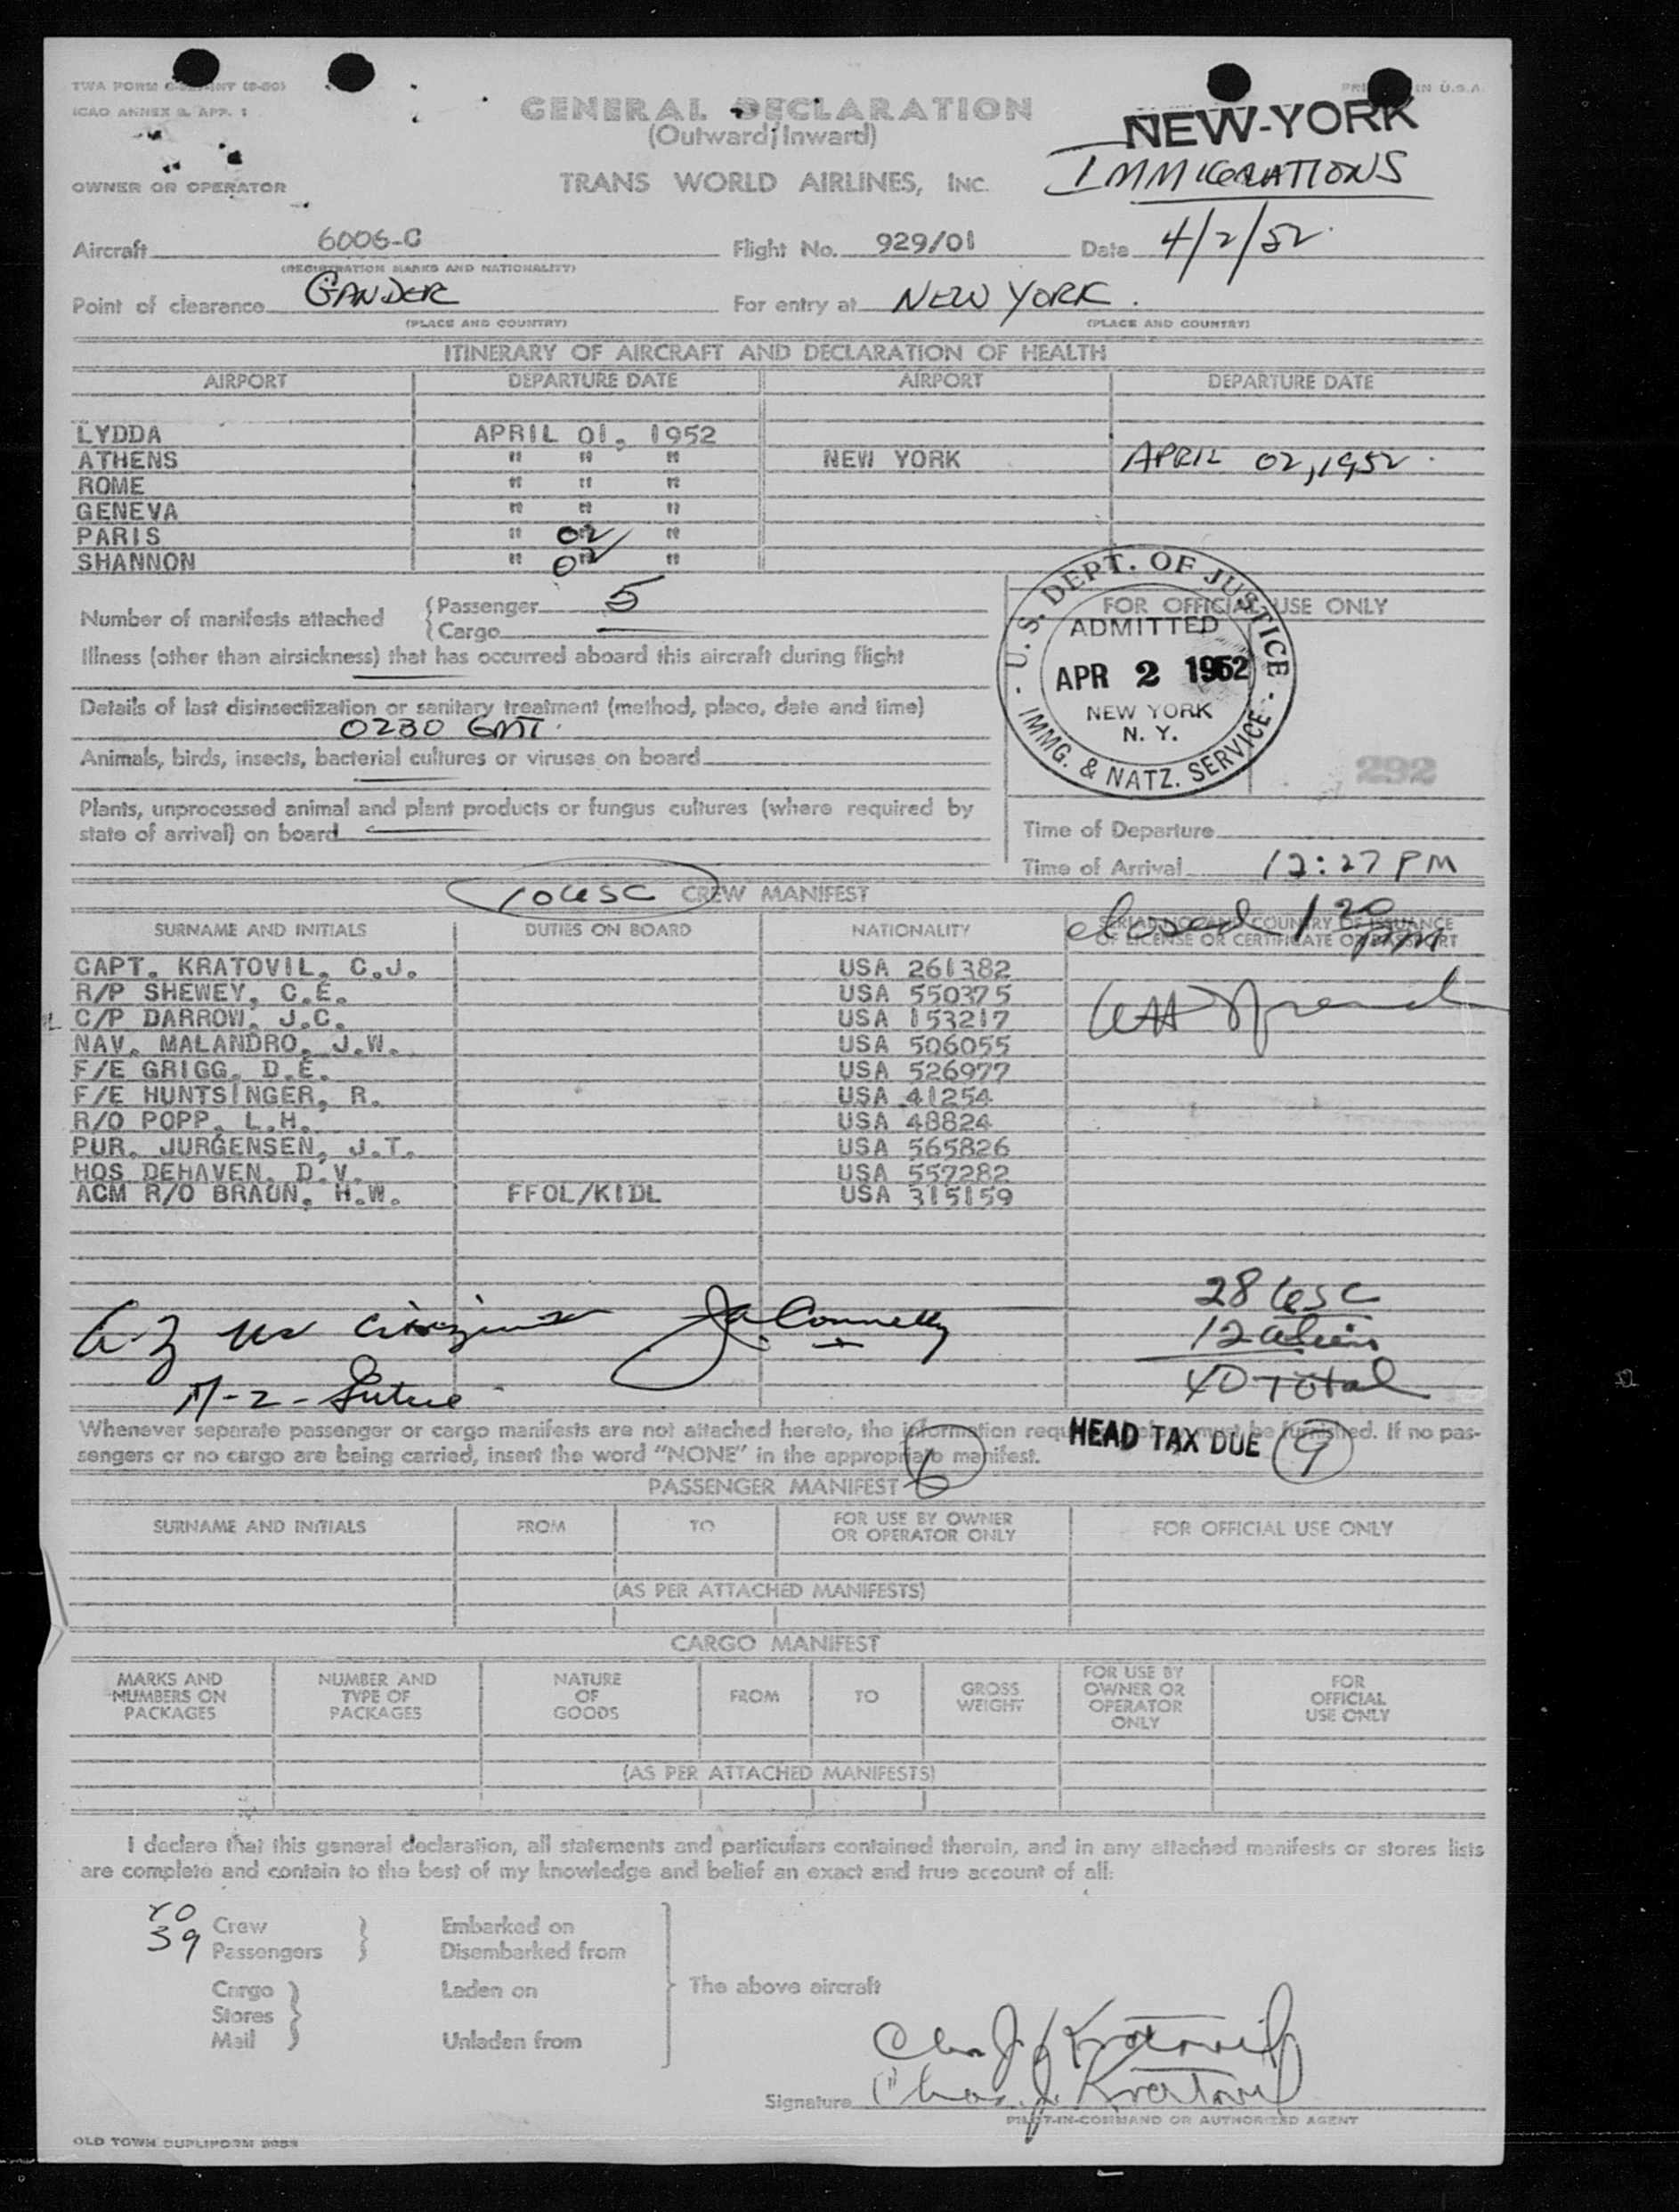 ICAO ANNEX 9, APP. 1
GENERAL DECLARATION
(Outward/Inward)
NEW-YORK
IMMIGRATIONS
OWNER OR OPERATOR TRANS WORLD AIRLINES, INC.
Aircraft 6006-C Flight No. 929/01 Date 4/2/52
(REGISTRATION MARKS AND NATIONALITY)
Point of clearance GANDER For entry at NEW YORK.
(PLACE AND COUNTRY) (PLACE AND COUNTRY)
ITINERARY OF AIRCRAFT AND DECLARATION OF HEALTH
AIRPORT DEPARTURE DATE AIRPORT DEPARTURE DATE
LYDDA APRIL 01, 1952
ATHENS " " " NEW YORK APRIL 02, 1952
ROME " " "
GENEVA " " "
PARIS " 02 "
SHANNON " 02 "
Number of manifests attached (Passenger 5
(Cargo —
FOR OFFICIAL USE ONLY
U.S. DEPT. OF JUSTICE - IMMG. & NATZ. SERVICE -
ADMITTED
APR 2 1952
NEW YORK
N. Y.
Illness (other than airsickness) that has occurred aboard this aircraft during flight
Details of last disinsectization or sanitary treatment (method, place, date and time)
0230 GMT.
Animals, birds, insects, bacterial cultures or viruses on board
292
Plants, unprocessed animal and plant products or fungus cultures (where required by
state of arrival) on board
Time of Departure
Time of Arrival 12:27 PM
10 USC CREW MANIFEST
closed 1 20 PM
SURNAME AND INITIALS DUTIES ON BOARD NATIONALITY SERIAL NO. AND COUNTRY OF ISSUANCE
OF LICENSE OR CERTIFICATE OR PASSPORT
CAPT. KRATOVIL, C.J. USA 261382
R/P SHEWEY, C.E. USA 550375
C/P DARROW, J.C. USA 153217
NAV. MALANDRO, J.W. USA 506055
F/E GRIGG, D.E. USA 526977
F/E HUNTSINGER, R. USA 41254
R/O POPP, L.H. USA 48824
PUR. JURGENSEN, J.T. USA 565826
HOS DEHAVEN, D.V. USA 557282
ACM R/O BRAUN, H.W. FFOL/KIDL USA 315159
28 USC
12 alien
40 Total
J Connelly
Whenever separate passenger or cargo manifests are not attached hereto, the information required below must be furnished. If no pas-
sengers or no cargo are being carried, insert the word "NONE" in the appropriate manifest.
HEAD TAX DUE 9
6
PASSENGER MANIFEST
SURNAME AND INITIALS FROM TO FOR USE BY OWNER
OR OPERATOR ONLY FOR OFFICIAL USE ONLY
(AS PER ATTACHED MANIFESTS)
CARGO MANIFEST
MARKS AND
NUMBERS ON
PACKAGES NUMBER AND
TYPE OF
PACKAGES NATURE
OF
GOODS FROM TO GROSS
WEIGHT FOR USE BY
OWNER OR
OPERATOR
ONLY FOR
OFFICIAL
USE ONLY
(AS PER ATTACHED MANIFESTS)
I declare that this general declaration, all statements and particulars contained therein, and in any attached manifests or stores lists
are complete and contain to the best of my knowledge and belief an exact and true account of all:
10 Crew Embarked on
39 Passengers Disembarked from
Cargo Laden on The above aircraft
Stores
Mail Unladen from
Chas J. Kratovil
Signature Chas. J. Kratovil
PILOT-IN-COMMAND OR AUTHORIZED AGENT
OLD TOWN DUPLIFORM